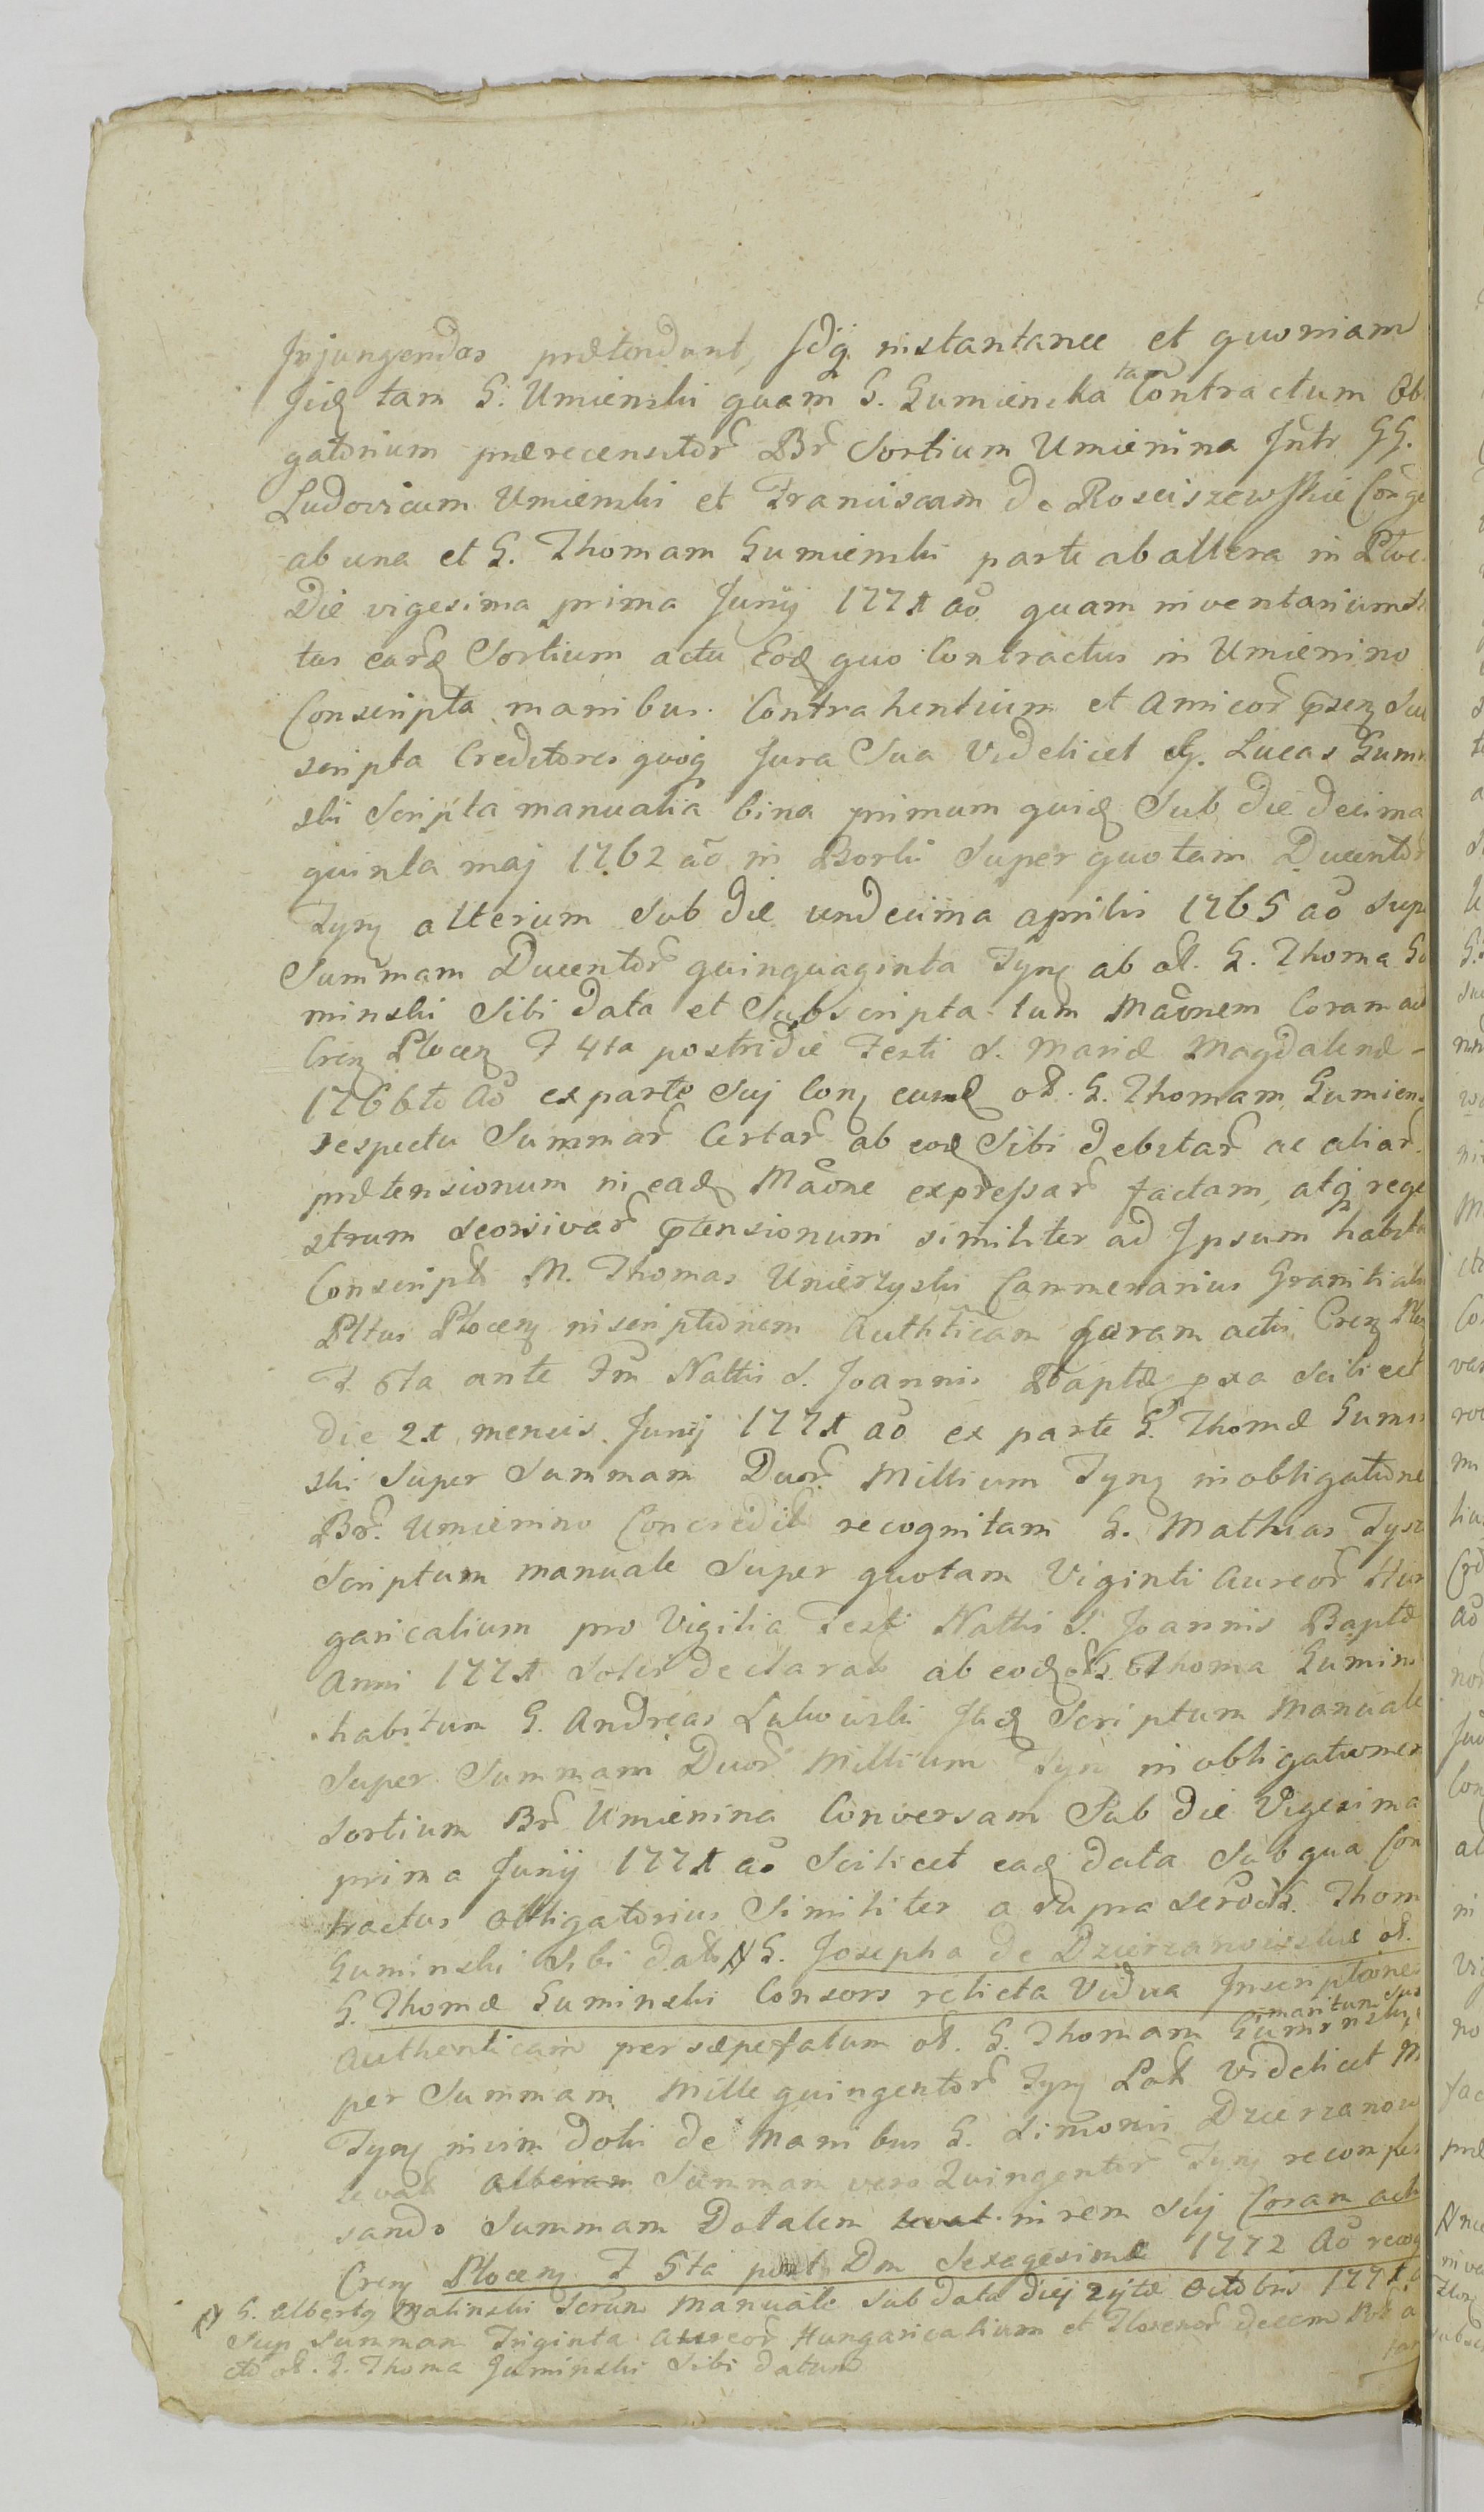 Injungendas prætendunt, Idq instantanee et quoniam
Iid tam G. Umienski quam G. Gumienska tam Contractum Ob
gatorium prærecensitor Br Sortium Umienina Intr GG.
Ludovicum Umienski et Franciscam de Rosciszewskie Conge
ab una et G. Thomam Gumienski parte ab altera in Ploc
Die vigesima prima Junij 1771 ao quam inventarium
tus eard Sortium actu Eod quo Contractus in Umienino
Conscripta manibus Contrahentium et Amicor psen Su
scripta Creditores quoq Jura Sua Videlicet G. Lucas Gumi
ski Scripta manualia bina primum quid Sub die decima
quinta maj 1762 ao in Borki Super quotam Ducentor
Fyn alterum Sub die undecima aprilis 1765 ao Supe
Summam Ducentor quinquaginta Fyn ab ol. G. Thoma Gu
minski Sibi data et Subscripta tum Maonem Coram act
Cren Plocen F 4ta postridie Festi S. Mariæ Magdalenæ -
1766to Ao ex parte Suj Con eumd ol. G. Thomam Gumien
respectu Summar Certar ab eod Sibi debitar ac aliar
prætensionum in ead Maone expressar factam, atq rege
strum seorsivar ptensionum similiter ad Ipsum habit
Conscript M. Thomas Unierzyski Camerarius Granitialis
Pltus Plocen inscriptionem Authticam Coram actis Cren Plo
F. 6ta ante Fm Nattis S. Joannis Baptæ pxa Scilicet
die 21 mensis Junij 1771 ao ex parte G. Thomæ Gumin
ski Super Summam Duor Millium Fyn in obligatione
Br. Umienino Concredit recognitam G. Mathias Tysz
Scriptum manuale Super quotam Viginti Aureor Hun
garicalium pro Vigilia Festi Nattis S. Joannis Baptæ
Anni 1771 Solvi declarat ab eod ol G. Thoma Gumins
habitum G. Andreas Lukowski Itid Scriptum Manuale
Super Summam Duor Millium Fyn in obligationem
Sortium Br Umienina Conversam Sub die Vigesima
prima Junij 1771 ao Scilicet ead data Sub qua Con
tractus obligatorius Similiter a supra G. Thom
Guminski Sibi dat G. Josepha de Dzierzanowskie ol.
G. Thomæ Guminski Consors relicta Vidua Inscriptione
Authenticam per sæpefatum ol. G. Thomam Guminski maritum suu
per Summam Mille quingentor Fyn Pol Videlicet M
Fyn in vim dotis de Manibus G. Simonis Dzierzanow
levat alteram Summam vero Quingentor Fyn recompen
sando Summam Dotalem levat in rem Suj Coram acti
Cren Plocen F 5ta post Dm Sexagesimæ 1772 Ao recog
G. Albertq Malinski Scrum Manuale Sub data diej 24tæ Octobris 1771
Sup Summam Triginta Aureor Hungaricalium et Florenor decem Pol a
ol. G. Thoma Guminski Sibi datum